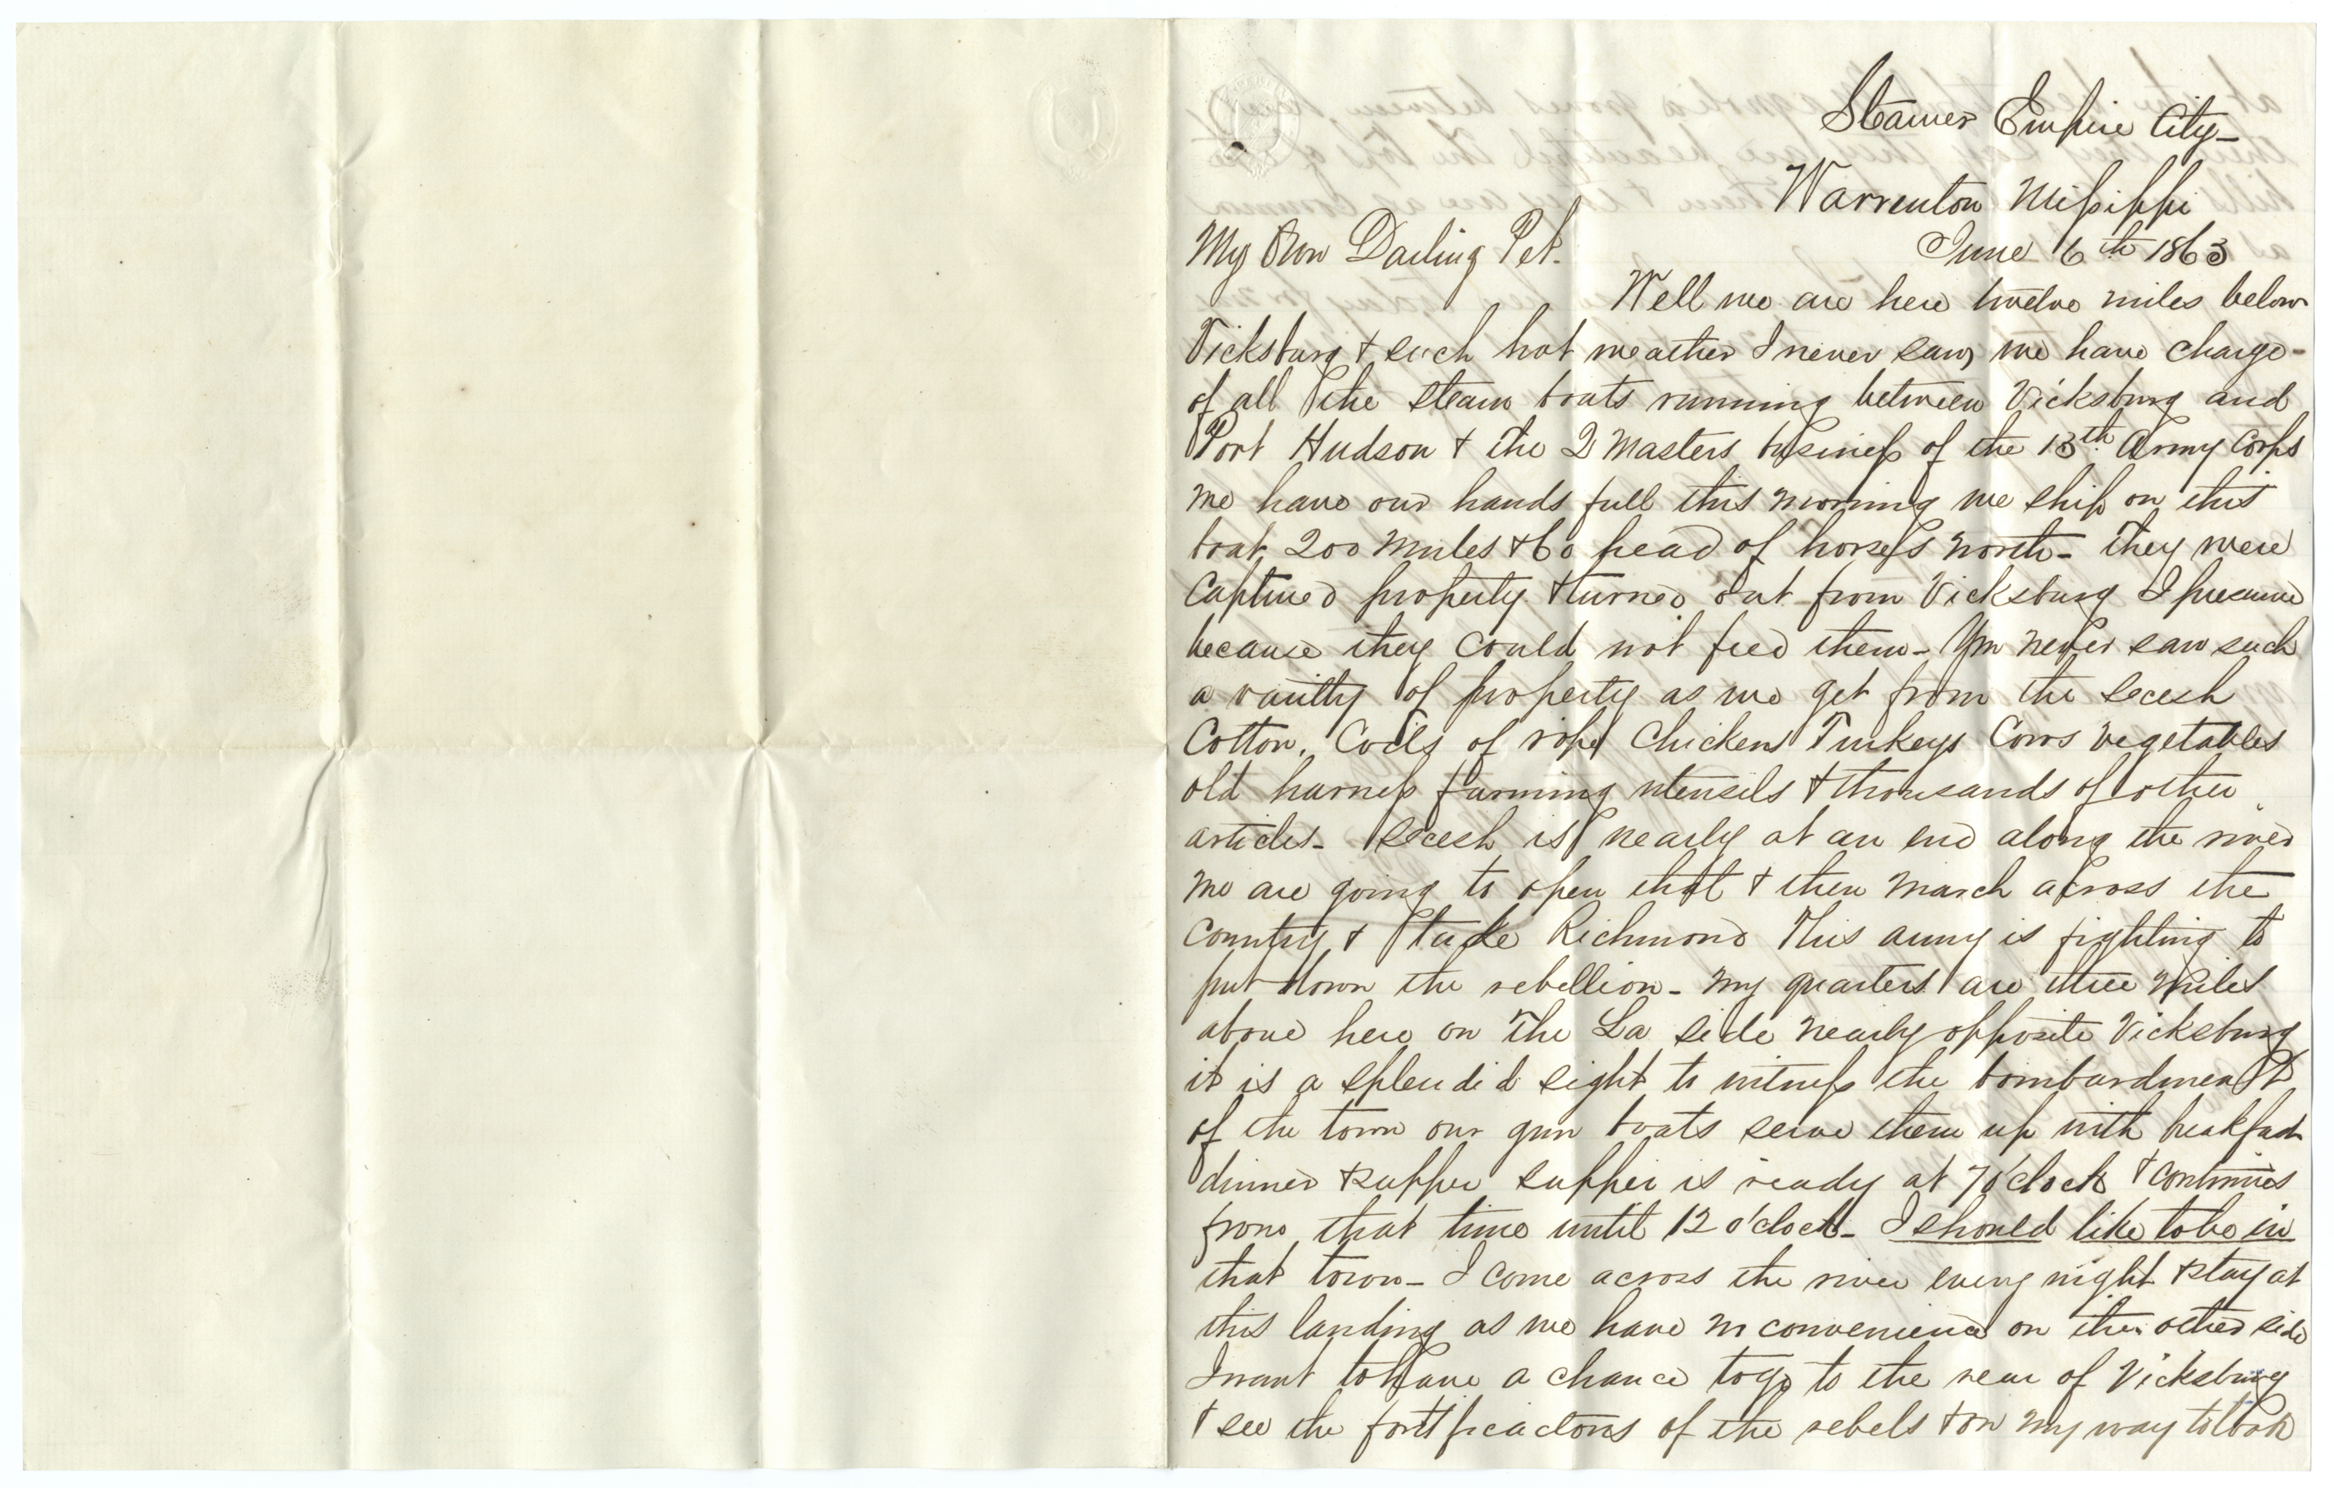 Steamer Empire City -
Warrenton Missippi
June 6th 1863
My Own Darling Pet.
Well we are here twelve miles below
Vicksburg & such hot weather I never saw, we have charge -
of all the steam boats running between Vicksburg and
Port Hudson & the 2 Masters business of the 13th Army Corps
we have our hands full this morning we ship on this
boat 200 mules & 60 head of horses north - they were
Captured property & turned out from Vicksburg I presume
because they could not feed them - You never saw such
a varitty of property as we get from the secesh
Cotton, Coils of rope Chickens Turkeys Cows vegetables
old harness farming utensils & thousands of other
articles - secesh is nearly at an end along the river
we are going to open that & then march across the
Country & take Richmond This army is fighting to
put down the rebellion - my quarters are three miles
above here on the La side nearly opposite Vicksburg
it is a splendid sight to witness the bombardment
of the town our gun boats serve them up with breakfast
dinner & supper supper is ready at 7 o'clock & continues
from that time until 12 o'clock - I should like to be in
that town - I come across the river every night & stay at
this landing as we have no convenience on the other side
I want to have a chance to go to the rear of Vicksburg
& see the fortificactons of the rebels & on my way to look